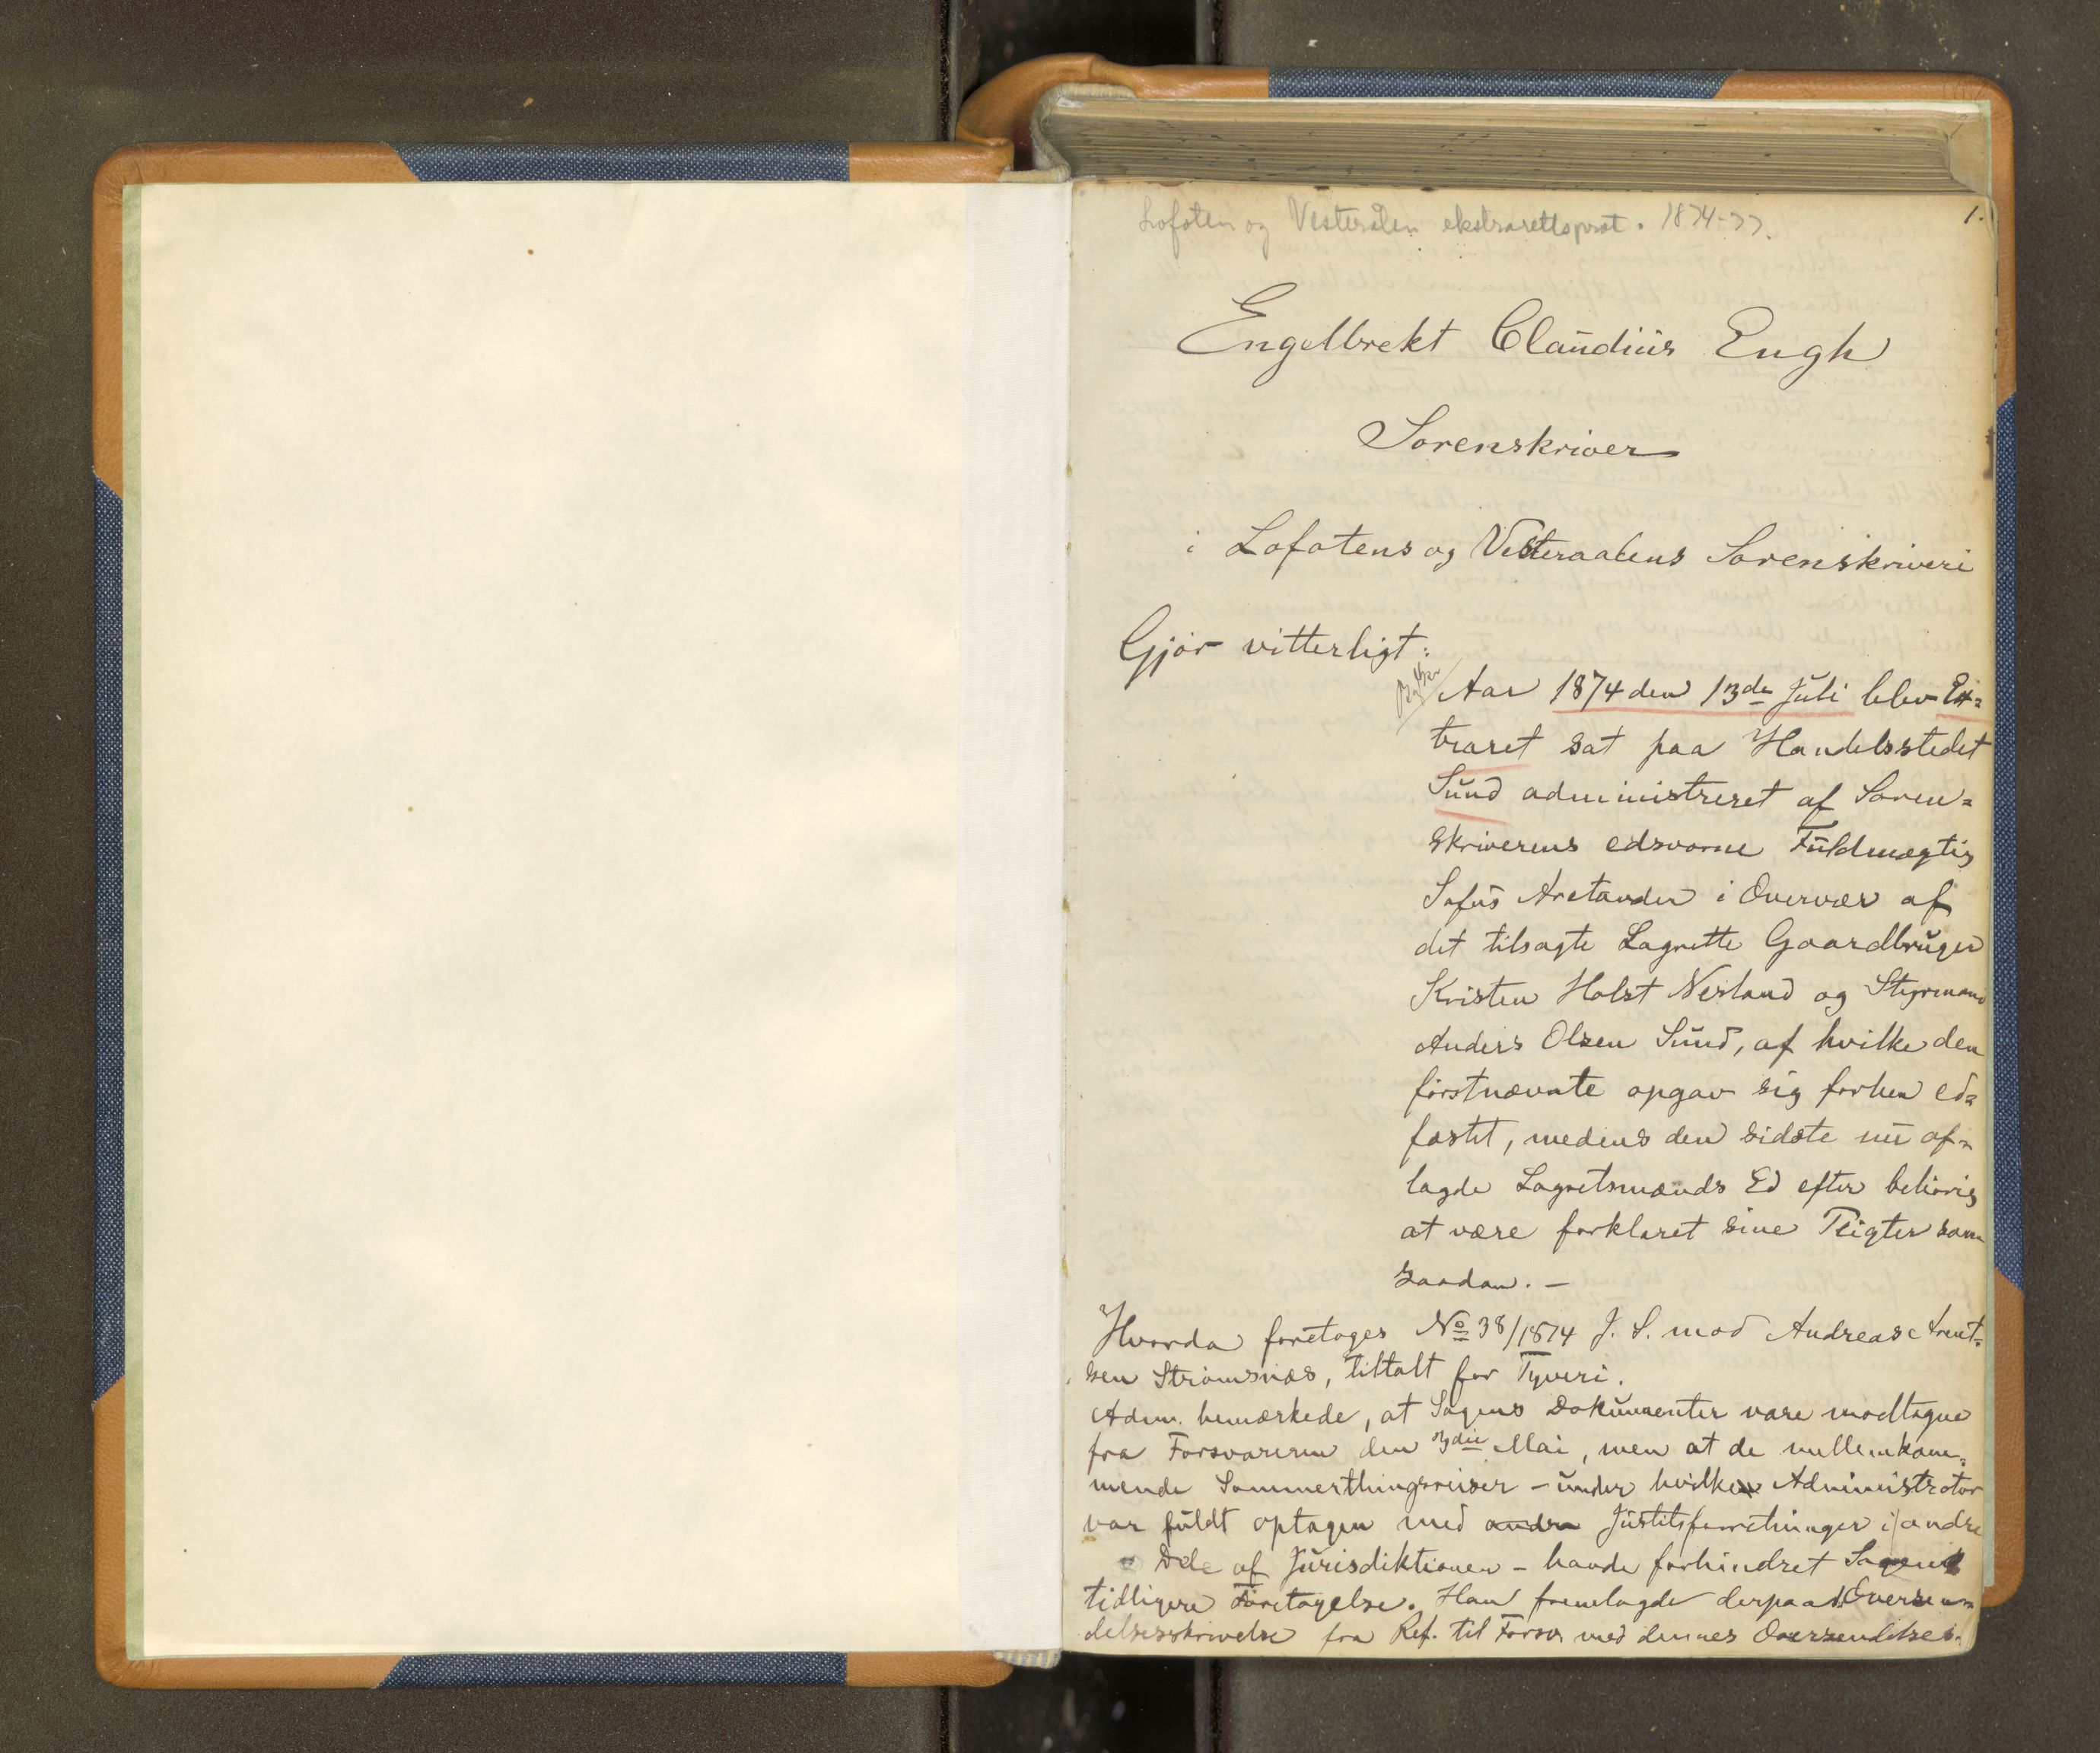 Lofoten og Vesterålen ekstrarettsprot. 1874-77.
1.
Engelbrekt Claudius Engh
Sorenskriver
i Lofotens og Vesteraalens Sorenskriveri
Gjør vitterligt:
Aar 1874 den 13de Juli blev Ex=
traret sat paa Handelsstedet
Sund administreret af Soren=
skriverens edsvorne Fuldmægtig
Sofus Arctander i Overvær af
det tilsagte Lagrette Gaardbruger
Kristen Holst Nesland og Styrmand
Anders Olsen Sund, af hvilke den
førstnævnte opgav sig forhen ed=
fæstet, medens den sidste nu af=
lagde Lagretsmænds Ed efter behørig
at være forklaret sine Pligter som
saadan. —
Hvorda foretoges No 38/1874 J. S. mod Andreas Arent=
sen Strømsnæs, tiltalt for Tyveri.
Adm. bemærkede, at Sagens Dokumenter vare modtagne
fra Forsvareren den 3die Mai, men at de mellemkom=
mende Sommerthingsreiser - under hvilke Administrator
var fuldt optagen med andre Justitsforretninger i andre
Dele af Jurisdiktionen - havde forhindret Sagens
tidligere Foretagelse. Han fremlagde derpaa 1. Oversen=
delsesskrivelse fra Ref. til Forsv. med dennes Oversendelses=